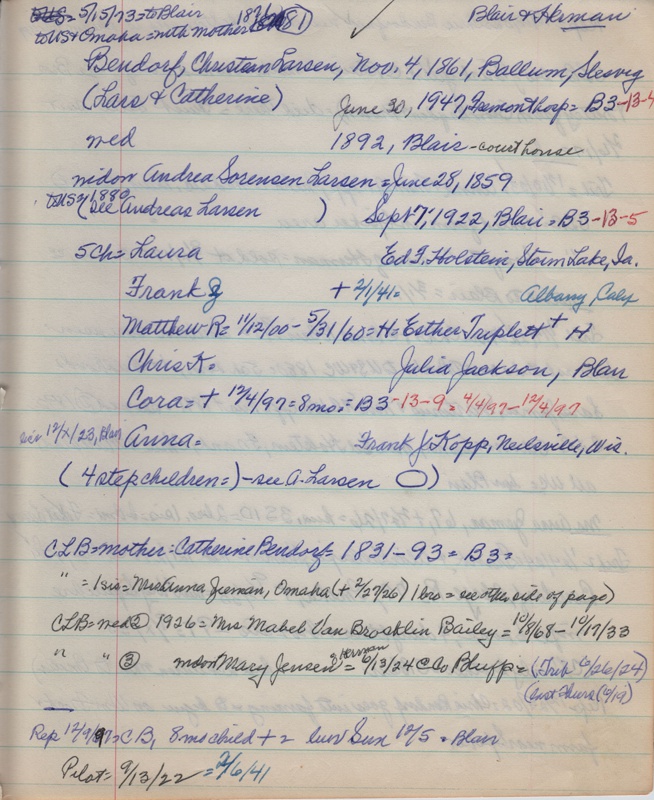 5/15/73=to Blair 1871 (81) Blair & Herman
to US & Omaha = with mother
Bendorf, Christian Larsen, Nov. 4, 1861, Ballum, Slesvig
(Lars & Catherine) June 30, 1947, Fremont hosp = B3-13-4
med 1892, Blair - courthouse
widow Andrea Sorensen Larsen = June 28, 1859
to US = 1880
(see Andreas Larsen ) Sept 7, 1922, Blair = B3-13-5
5 Ch = Laura Ed F. Holstein, Storm Lake, Ia.
Frank + 2/1/41= Albany, Calif
Matthew R = 11/12/00 - 5/31/60 = H = Esther Triplett + H
Chris K = Julia Jackson, Blair
Cora = + 12/4/97 = 8 mo. = B3-13-9 = 4/4/97-12/4/97
12/x/23, Blair Anna = Frank J. Kopp, Neilsville, Wis.
(4 step children =) - see A. Larsen )
CLB = mother: Catherine Bendorf = 1831-93 = B3 =
" = 1 sis = Mrs Anna Jieman, Omaha (+ 2/27/26) 1 bro = see other side of page)
CLB = med ② 1926 = Mrs Mabel Van Brocklin Bailey = 10/8/68 - 10/17/33
" " ③ widow Mary Jensen = 6/13/24 C Co Bluff = (Trib 6/26/24)
Herman
(Ent Thurs (6/19)
Rep 12/9/97 = CB, 8 mo child + = Sun 12/5 = Blair
Pilot = 9/13/22 = 2/6/41